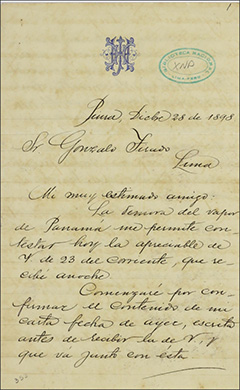 BIBLIOTECA NACIONAL
XNP
LIMA-PERU
Piura, Dicbre 28 de 1898
Sr Gonzalo
Lima
Me muy estimado amigo:
La demora del vapor
de Panamá me permite con-
testar hoy la apreciable de
V. de 23 del corriente, que re-
cibí anoche.
Comenzaré por con-
firmar el contenido de mi
carta fecha de ayer, escrita
antes de recibir la de V. y
que va junto con esta